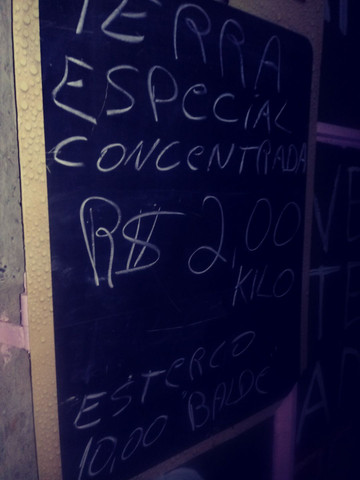 TERRA
ESPECIAL
CONCENTRADA
R$ 2,00
KILO
ESTERCO
10,00 BALDE